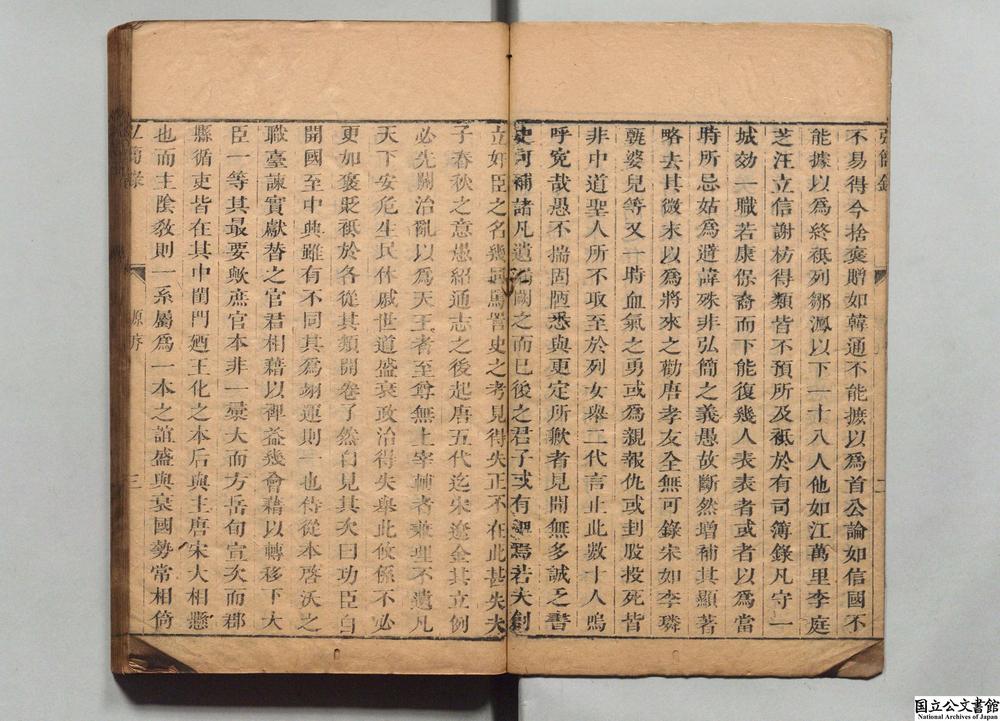 不易得今捨褒贈如韓通不能據以爲首公論如信國不
能據以爲終秪列鄒㵯以下一十八人他如江萬里李庭
芝汪立信謝枋得類皆不預所及秪於有司簿錄凡守一
城効一職若康保裔而下能復幾人表表者或者以爲當
時所忌姑爲避諱殊非弘簡之義愚故斷然增補其顯著
略去其微末以爲將來之勸唐孝友全無可錄宋如李璘
甄婆兒等又一時血氣之勇或爲親報仇或刲股投死皆
非中道聖人所不取至於列女舉二代言止此數十人嗚
呼寃哉愚不揣固陋悉與更定所歉者見聞無多誠乏書
史可補諸凡遺闕之而已後之君子或有 焉若夫創
立奸臣之名幾與罵詈史之考見得失正不在此甚失夫
子春秋之意愚紹通志之後起唐五代迄宋遼金其立例
必先關治亂以爲天王者至尊無上宰輔者兼理不遺凡
天下安危生民休戚世道盛衰政治得失與此攸係不必
更如褒貶秪於各從其類開卷了然自見其次曰功臣自
開國至中興雖有不同其爲翊運則一也侍從本啓沃之
職臺諫實獻替之官君相藉以裨益幾會藉以轉移下大
臣一等其最要歟庶官本非一彙大而方岳旬宣次而郡
縣循吏皆在其中閨門廼王化之本后與主唐宋大相懸
也而主陰敎則一系屬爲一本之誼盛與衰國勢常相倚
弘簡錄
原序
三
国立公文書館
National Archives of Japan